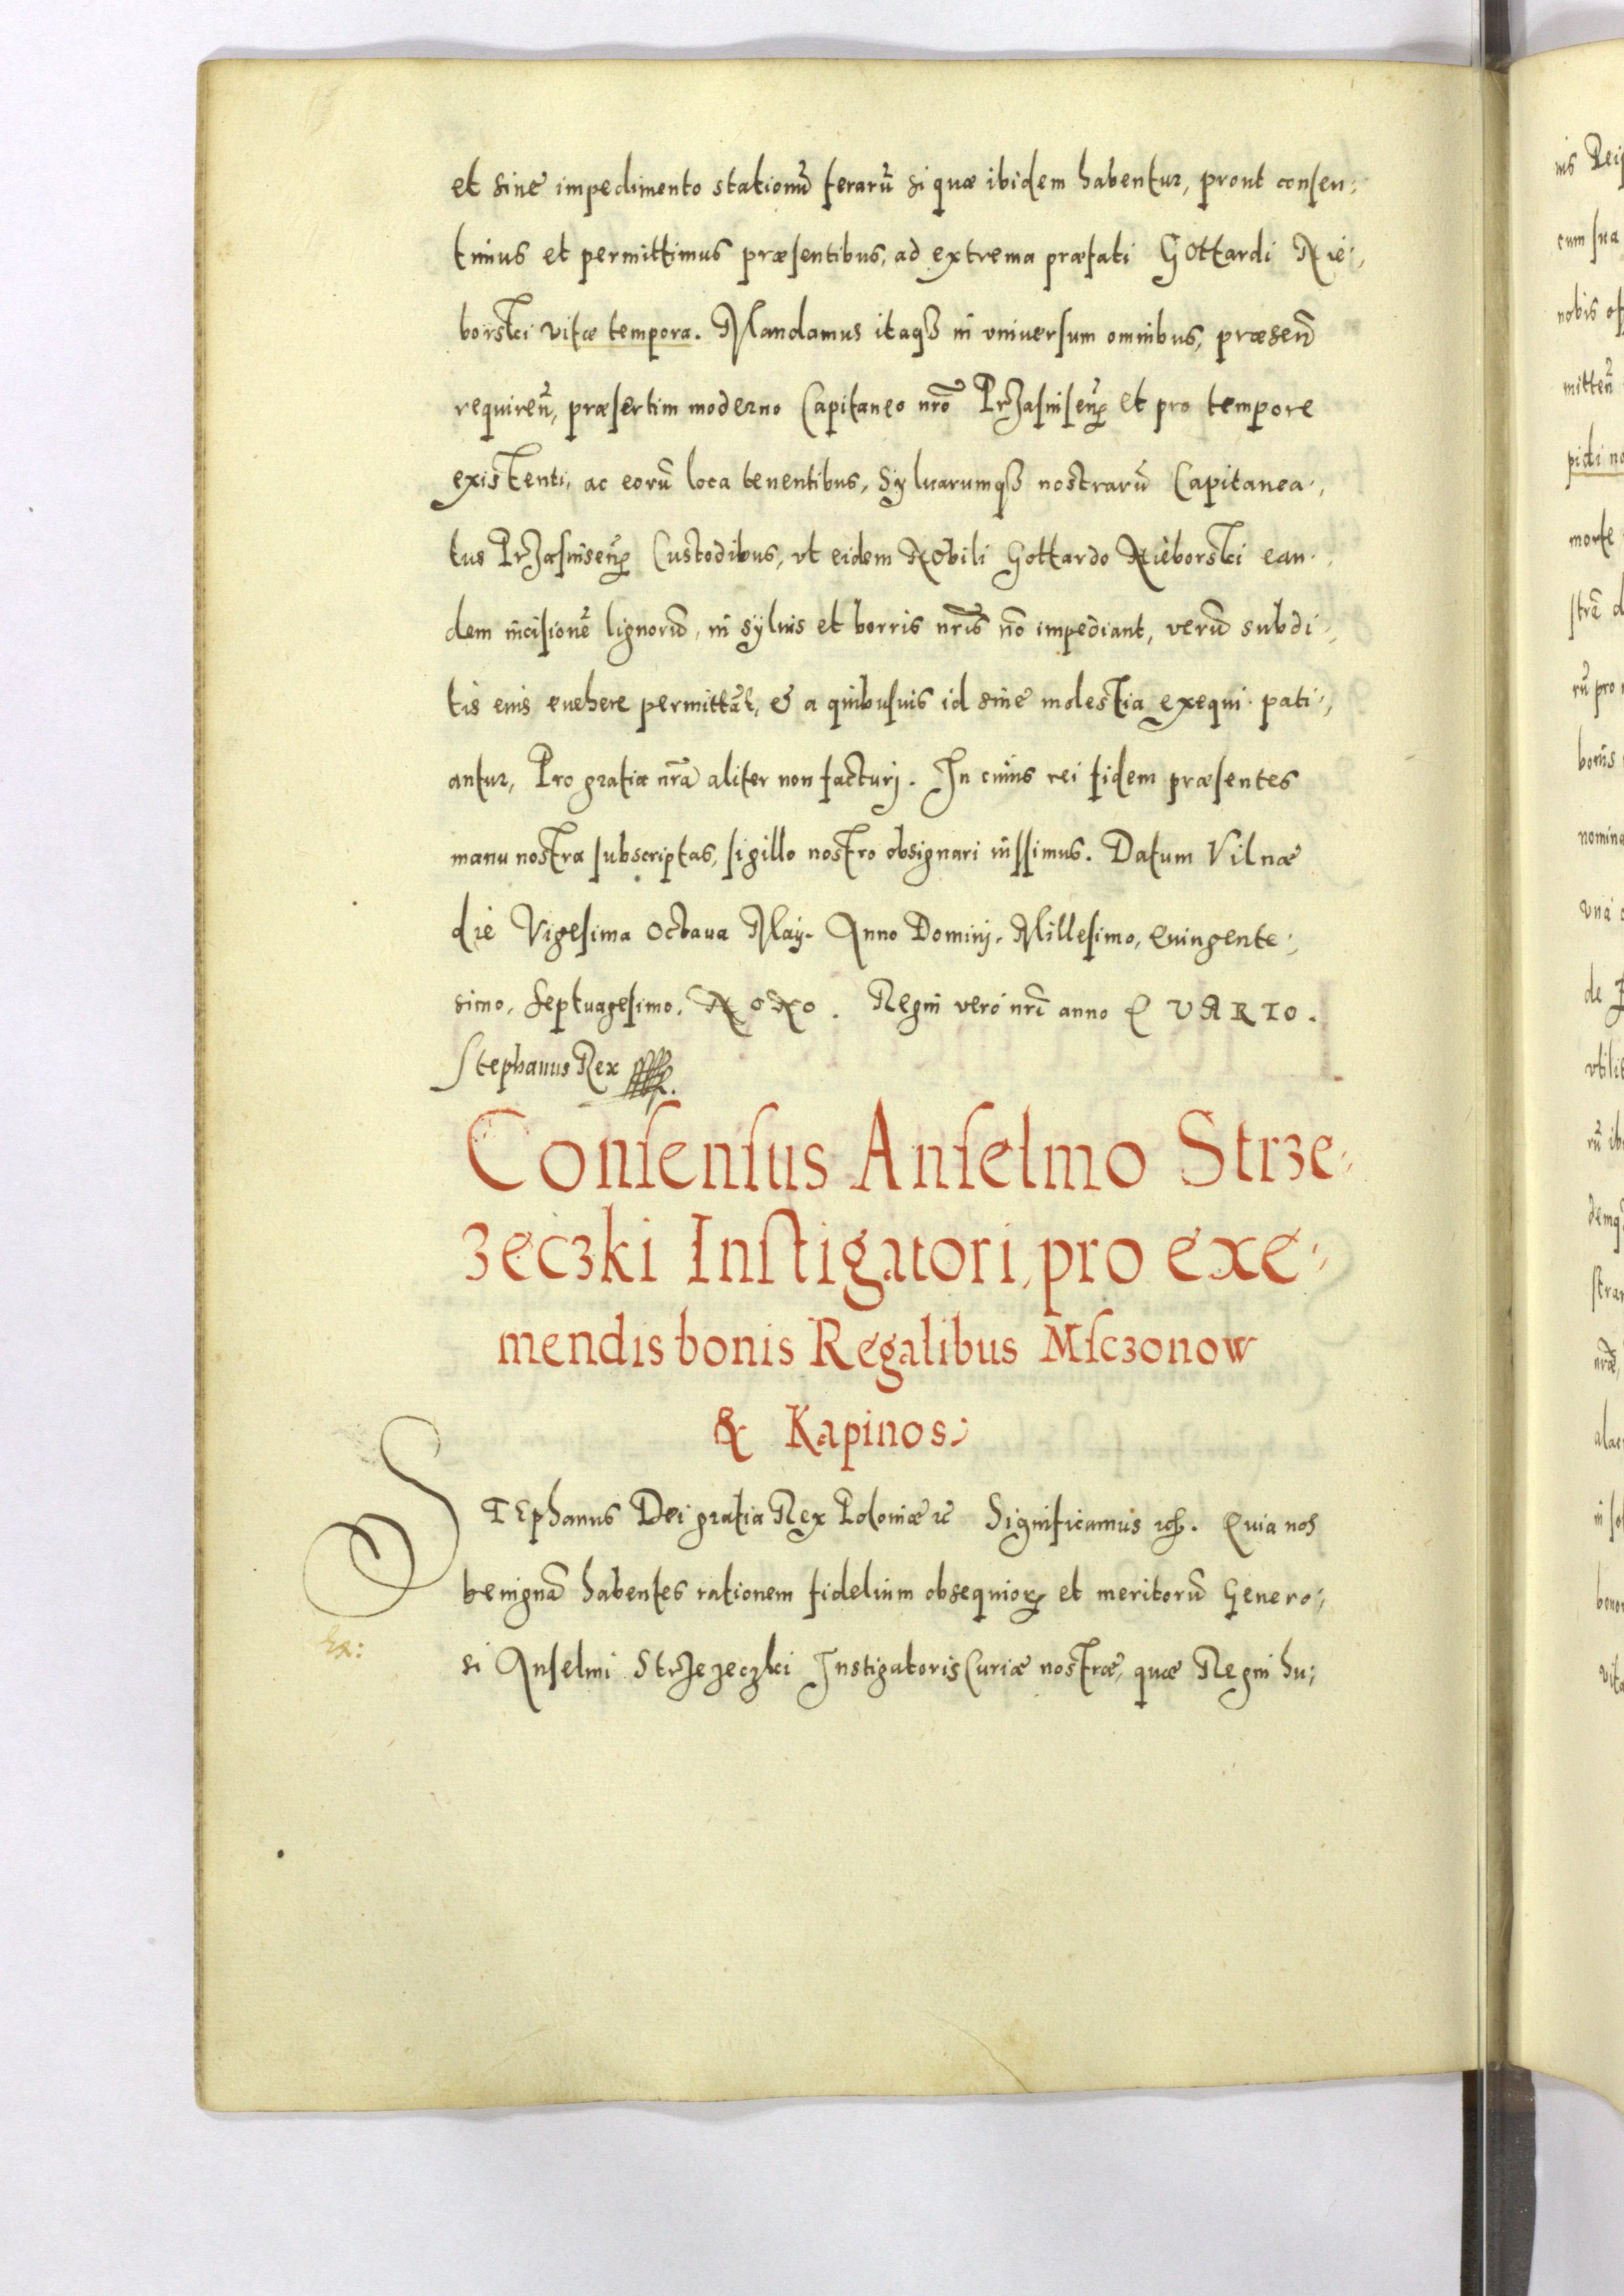 et sine impedimento stationū ferarū si quæ ibidem habentur, prout consen-
timus et permittimus præsentibus, ad extrema præfati Gottardi Nie-
borski vitæ tempora. Mandamus itaqꝫ in vniuersum omnibus, præsen̄
requiren̄, præsertim moderno Capitaneo nrō Przasnisen̄ et pro tempore
existenti, ac eorū loca tenentibus, Syluarumqꝫ nostrarū Capitanea-
tus Przasnisen̄ Custodibus, vt eidem Nobili Gottardo Nieborski ean-
dem incisionē lignorū, in syluis et borris nrīs nō impediant, verū subdi-
tis eius euehere permittāt, & a quibusuis id sine molestia exequi pati-
antur, Pro gratia nrā aliter non facturj. In cuius rei fidem præsentes
manu nostra subscriptas, sigillo nostro obsignari iussimus. Datum Vilnæ
die Vigesima Octaua Maij. Anno Dominj. Millesimo, Quingente-
simo, Septuagesimo, NONO. Regni vero nrī anno QVARTO.
Stephanus Rex
Consensus Anselmo Strze-
zeczki Instigatori, pro exe-
mendis bonis Regalibus Msczonow
& Kapinos.
STEphanus Dei gratia Rex Poloniæ ꝛc Significamus ꝛcꝫ. Quia nos
benignā habentes rationem fidelium obsequioꝝ et meritorū Genero-
si Anselmi Strzezeczki Instigatoris Curiæ nostræ, quæ Regni hu-
nis Reip
cum sua
nobis
mitten̄
pidi no
morte
strē d
rū pro
bonis
nomine
vna
de
vtilit
rū ib
demq
stra
nrā,
alac
in
bono
vita